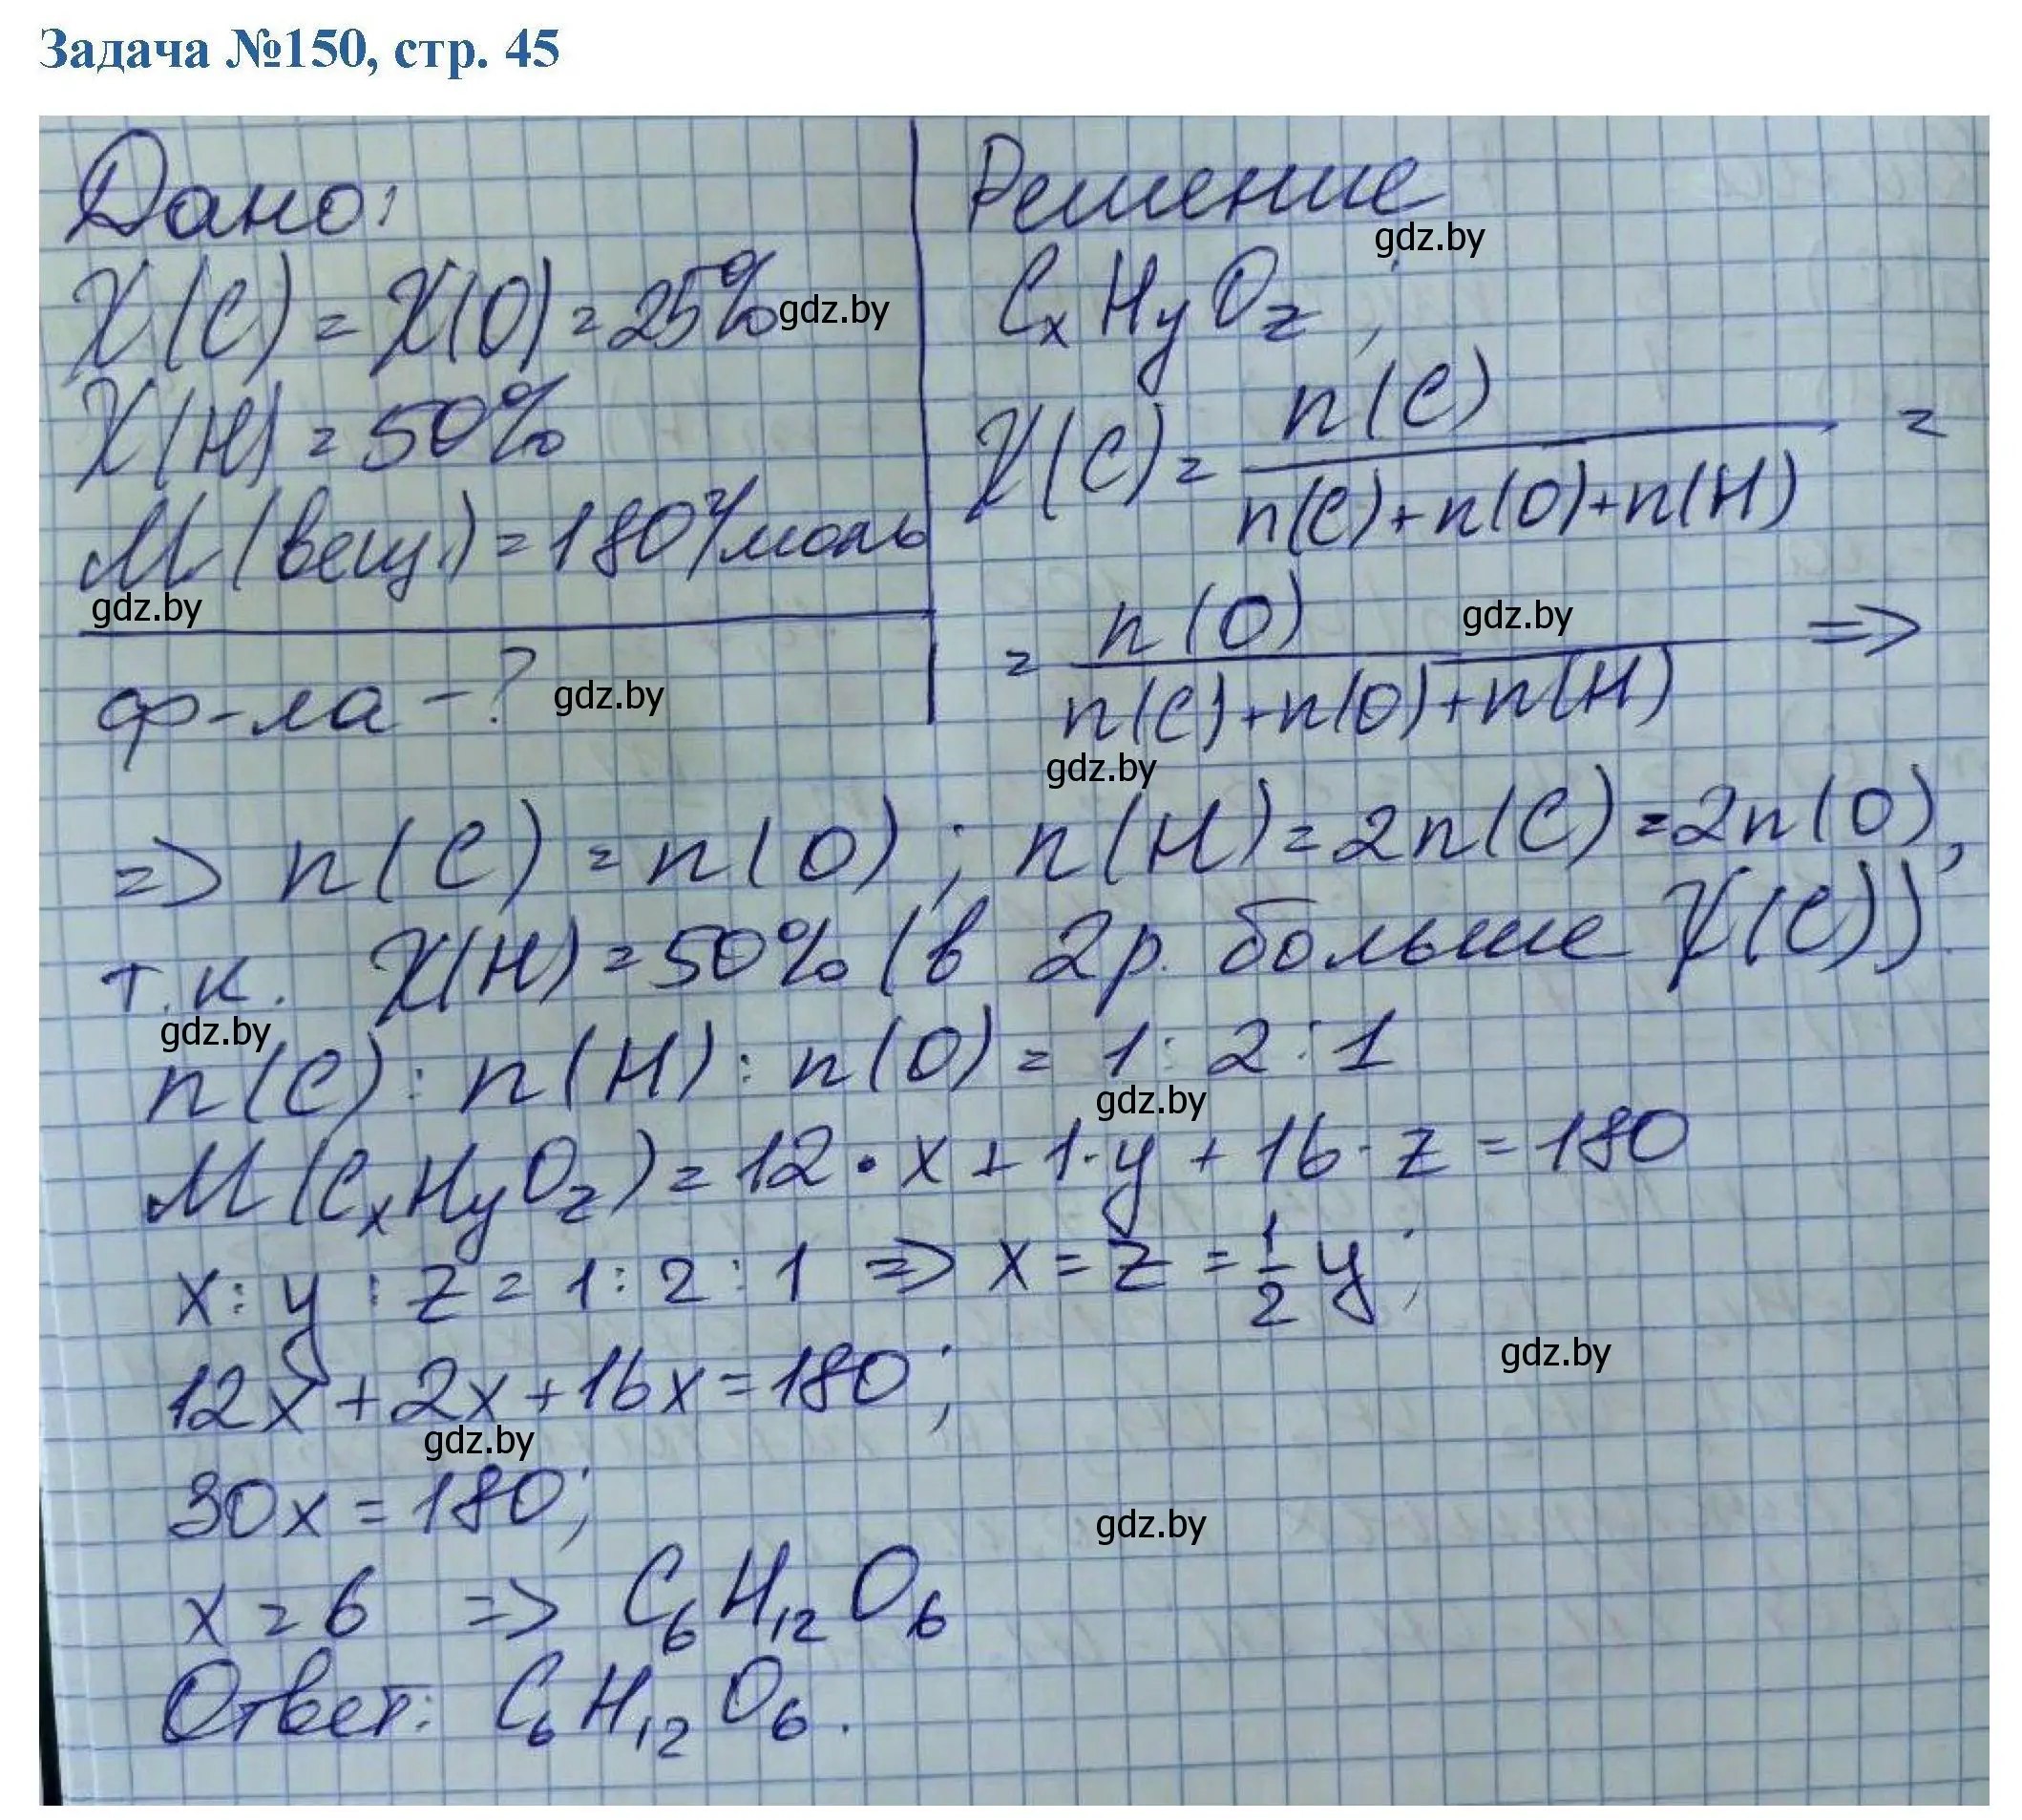 Задача №150, стр. 45
Дано:
X(C) = X(O) = 25% gdz.by
X(H) = 50%
M(вещ.) = 180 г/моль
gdz.by
ф-ла - ? gdz.by
Решение
gdz.by
CxHyOz;
X(C) = n(C) / (n(C)+n(O)+n(H)) =
= n(O) / (n(C)+n(O)+n(H)) =>
gdz.by
gdz.by
=> n(C) = n(O); n(H) = 2n(C) = 2n(O),
т.к. X(H) = 50% (в 2р. больше X(C)).
gdz.by
n(C) : n(H) : n(O) = 1 : 2 : 1
gdz.by
M(CxHyOz) = 12·x + 1·y + 16·z = 180
x : y : z = 1 : 2 : 1 => x = z = 1/2 y;
gdz.by
12x + 2x + 16x = 180;
gdz.by
30x = 180;
gdz.by
x = 6 => C₆H₁₂O₆
Ответ: C₆H₁₂O₆.